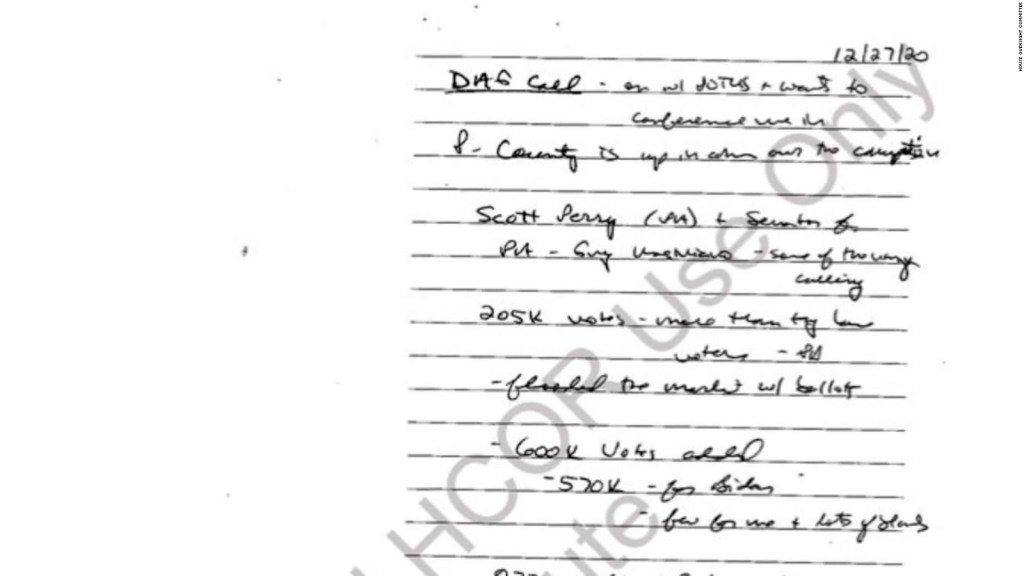 12/27/20
DAG Call - on w/ POTUS + wants to
conference me in
P - Country is up in arms over the corruption
Scott Perry (PA) + Senator for
PA - Guy - some of the
calling
205K votes - more than they have
voters - PA
- flooded the market w/ ballots
- 600K votes added
- 570K - for Biden
- few for me + lots of
HCOR Use Only
HOUSE OVERSIGHT COMMITTEE